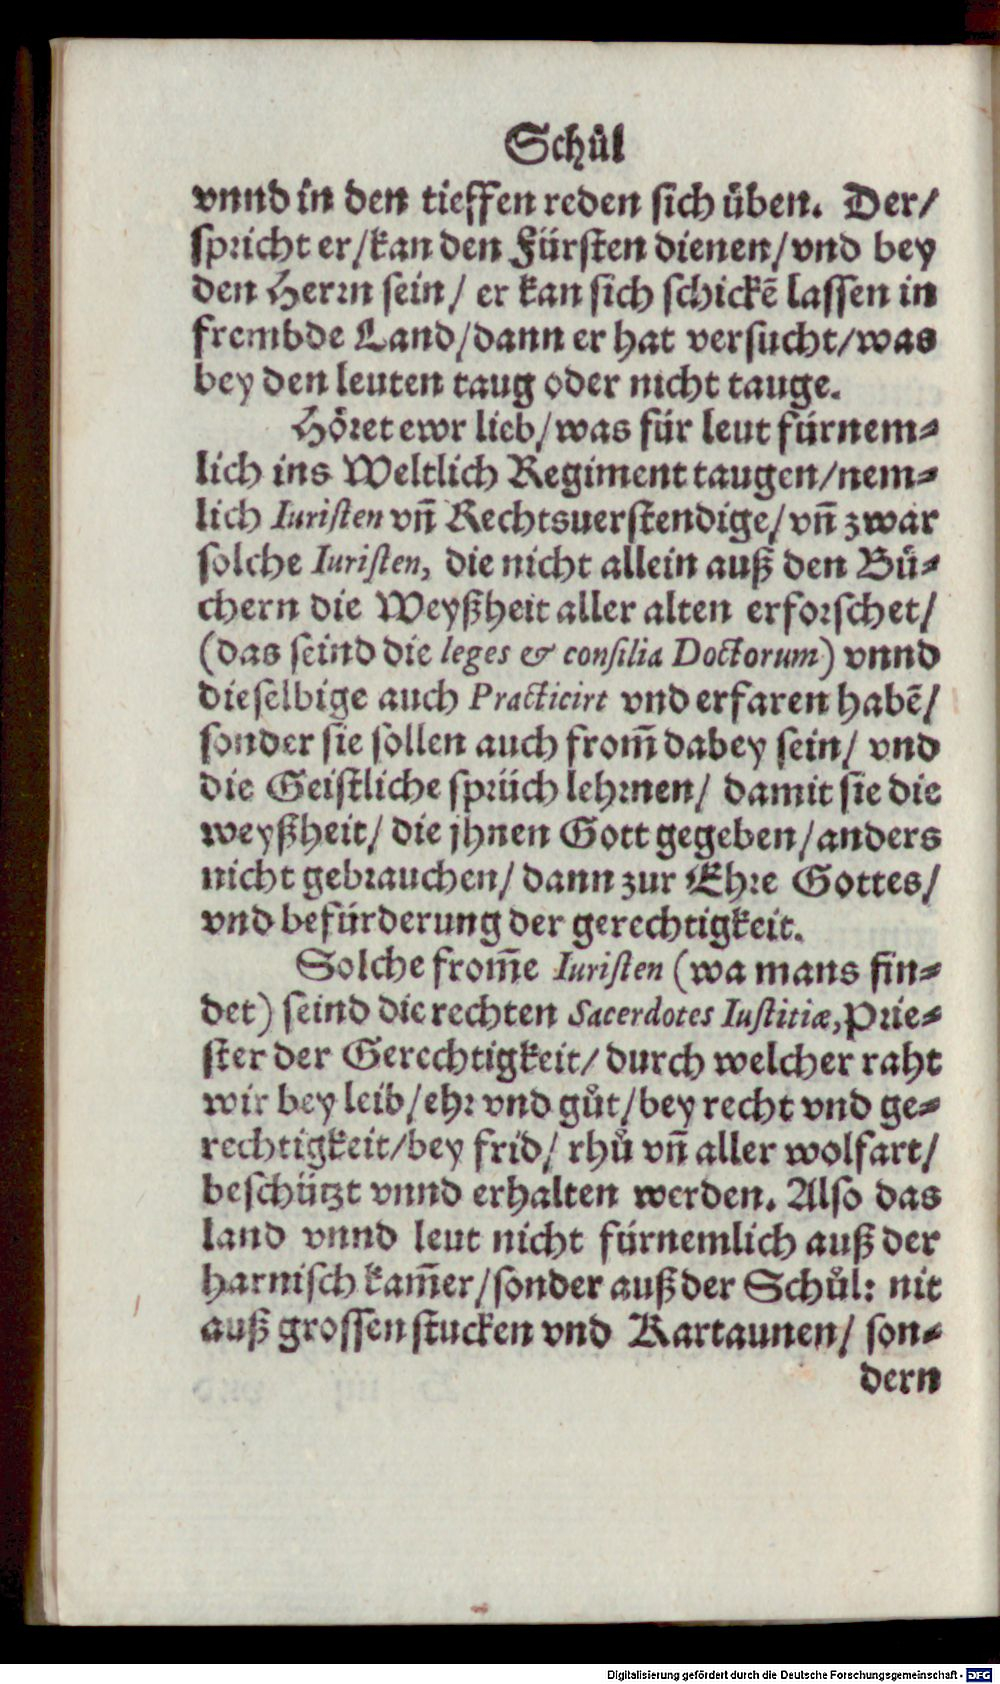 Schůl
vnnd in den tieffen reden sich üben. Der/
spricht er/kan den Fürsten dienen/vnd bey
den Herrn sein/ er kan sich schickē lassen in
frembde Land/dann er hat versucht/was
bey den leuten taug oder nicht tauge.
Höret ewr lieb/was für leut fürnem⸗
lich ins Weltlich Regiment taugen/nem⸗
lich Iuristen vn̄ Rechtsuerstendige/vn̄ zwar
solche Iuristen, die nicht allein auß den Bü⸗
chern die Weyßheit aller alten erforschet/
(das seind die leges & consilia Doctorum) vnnd
dieselbige auch Practicirt vnd erfaren habē/
sonder sie sollen auch from̄ dabey sein/ vnd
die Geistliche sprüch lehrnen/ damit sie die
weyßheit/ die jhnen Gott gegeben/anders
nicht gebrauchen/ dann zur Ehre Gottes/
vnd befürderung der gerechtigkeit.
Solche from̄e Iuristen (wa mans fin⸗
det) seind die rechten Sacerdotes Iustitiæ, Prie⸗
ster der Gerechtigkeit/ durch welcher raht
wir bey leib/ehr vnd gůt/bey recht vnd ge⸗
rechtigkeit/bey frid/ rhů vn̄ aller wolfart/
beschützt vnnd erhalten werden. Also das
land vnnd leut nicht fürnemlich auß der
harnisch kam̄er/sonder auß der Schůl: nit
auß grossen stucken vnd Kartaunen/ son⸗
dern
Digitalisierung gefördert durch die Deutsche Forschungsgemeinschaft - DFG